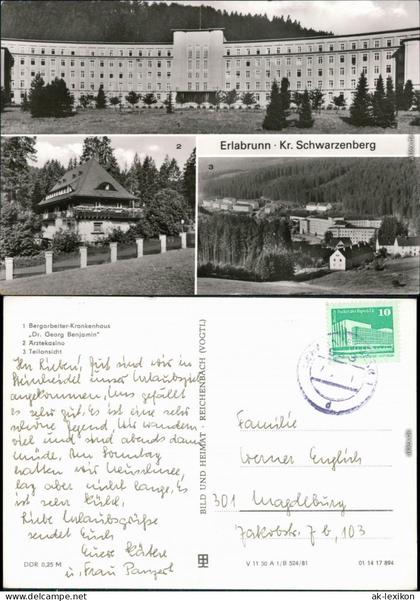 2
Erlabrunn · Kr. Schwarzenberg
3
1 Bergarbeiter-Krankenhaus
„Dr. Georg Benjamin"
2 Ärztekasino
3 Teilansicht
Ihr Lieben! Gut sind wir in
Steinheidel unser Urlaubsziel
angekommen, uns gefällt
es sehr gut. Es ist eine sehr
schöne Gegend. Wir wandern
viel und sind abends dann
müde. Am Sonntag
hatten wir Neuschnee,
lag aber nicht lange, Es
ist sehr kühl.
Liebe Urlaubsgrüße
sendet Euch
Eure Käthe
u, Frau Panzert
DDR 0,25 M
BILD UND HEIMAT · REICHENBACH (VOGTL)
10
Familie
Werner Englich
301 Magdeburg
Jakobstr. 7 b, 103
V 11 50 A 1/B 524/81
01 14 17 894
© ansichtskarten-lexikon.de
ak-lexikon.de